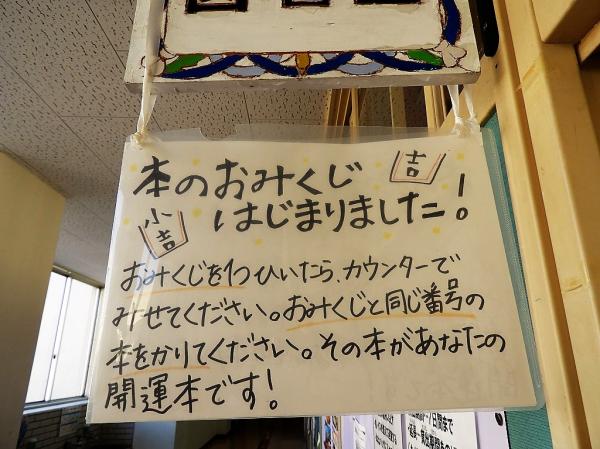 本のおみくじ
はじまりました!
吉
小吉
おみくじを1つひいたら、カウンターで
みせてください。おみくじと同じ番号の
本をかりてください。その本があなたの
開運本です!